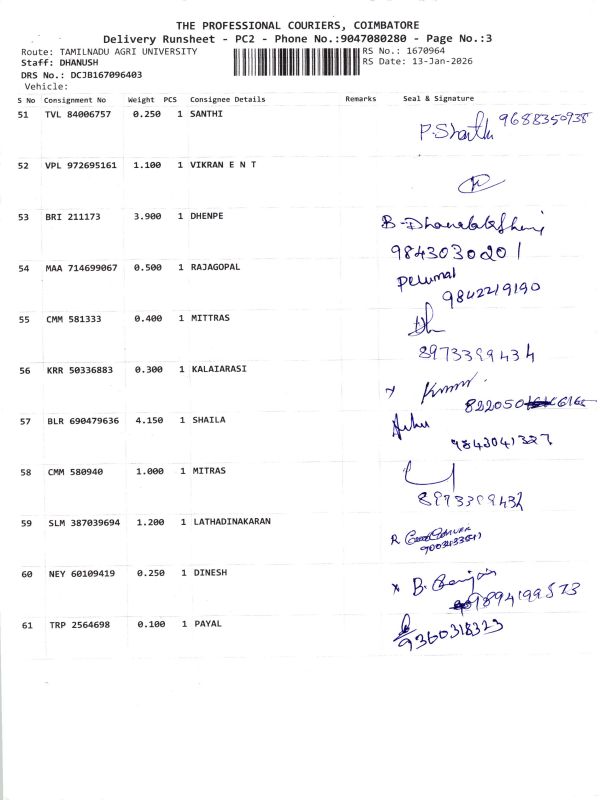 THE PROFESSIONAL COURIERS, COIMBATORE
Delivery Runsheet - PC2 - Phone No.:9047080280 - Page No.:3
Route: TAMILNADU AGRI UNIVERSITY RS No.: 1670964
Staff: DHANUSH RS Date: 13-Jan-2026
DRS No.: DCJB167096403
Vehicle:
S No Consignment No Weight PCS Consignee Details Remarks Seal & Signature
51 TVL 84006757 0.250 1 SANTHI
9688350938
52 VPL 972695161 1.100 1 VIKRAN E N T
53 BRI 211173 3.900 1 DHENPE
9843030201
54 MAA 714699067 0.500 1 RAJAGOPAL Perumal
9842219190
55 CMM 581333 0.400 1 MITTRAS
8973399434
56 KRR 50336883 0.300 1 KALAIARASI
57 BLR 690479636 4.150 1 SHAILA
9843041327
58 CMM 580940 1.000 1 MITRAS
59 SLM 387039694 1.200 1 LATHADINAKARAN
60 NEY 60109419 0.250 1 DINESH
9894199573
61 TRP 2564698 0.100 1 PAYAL
9360318323